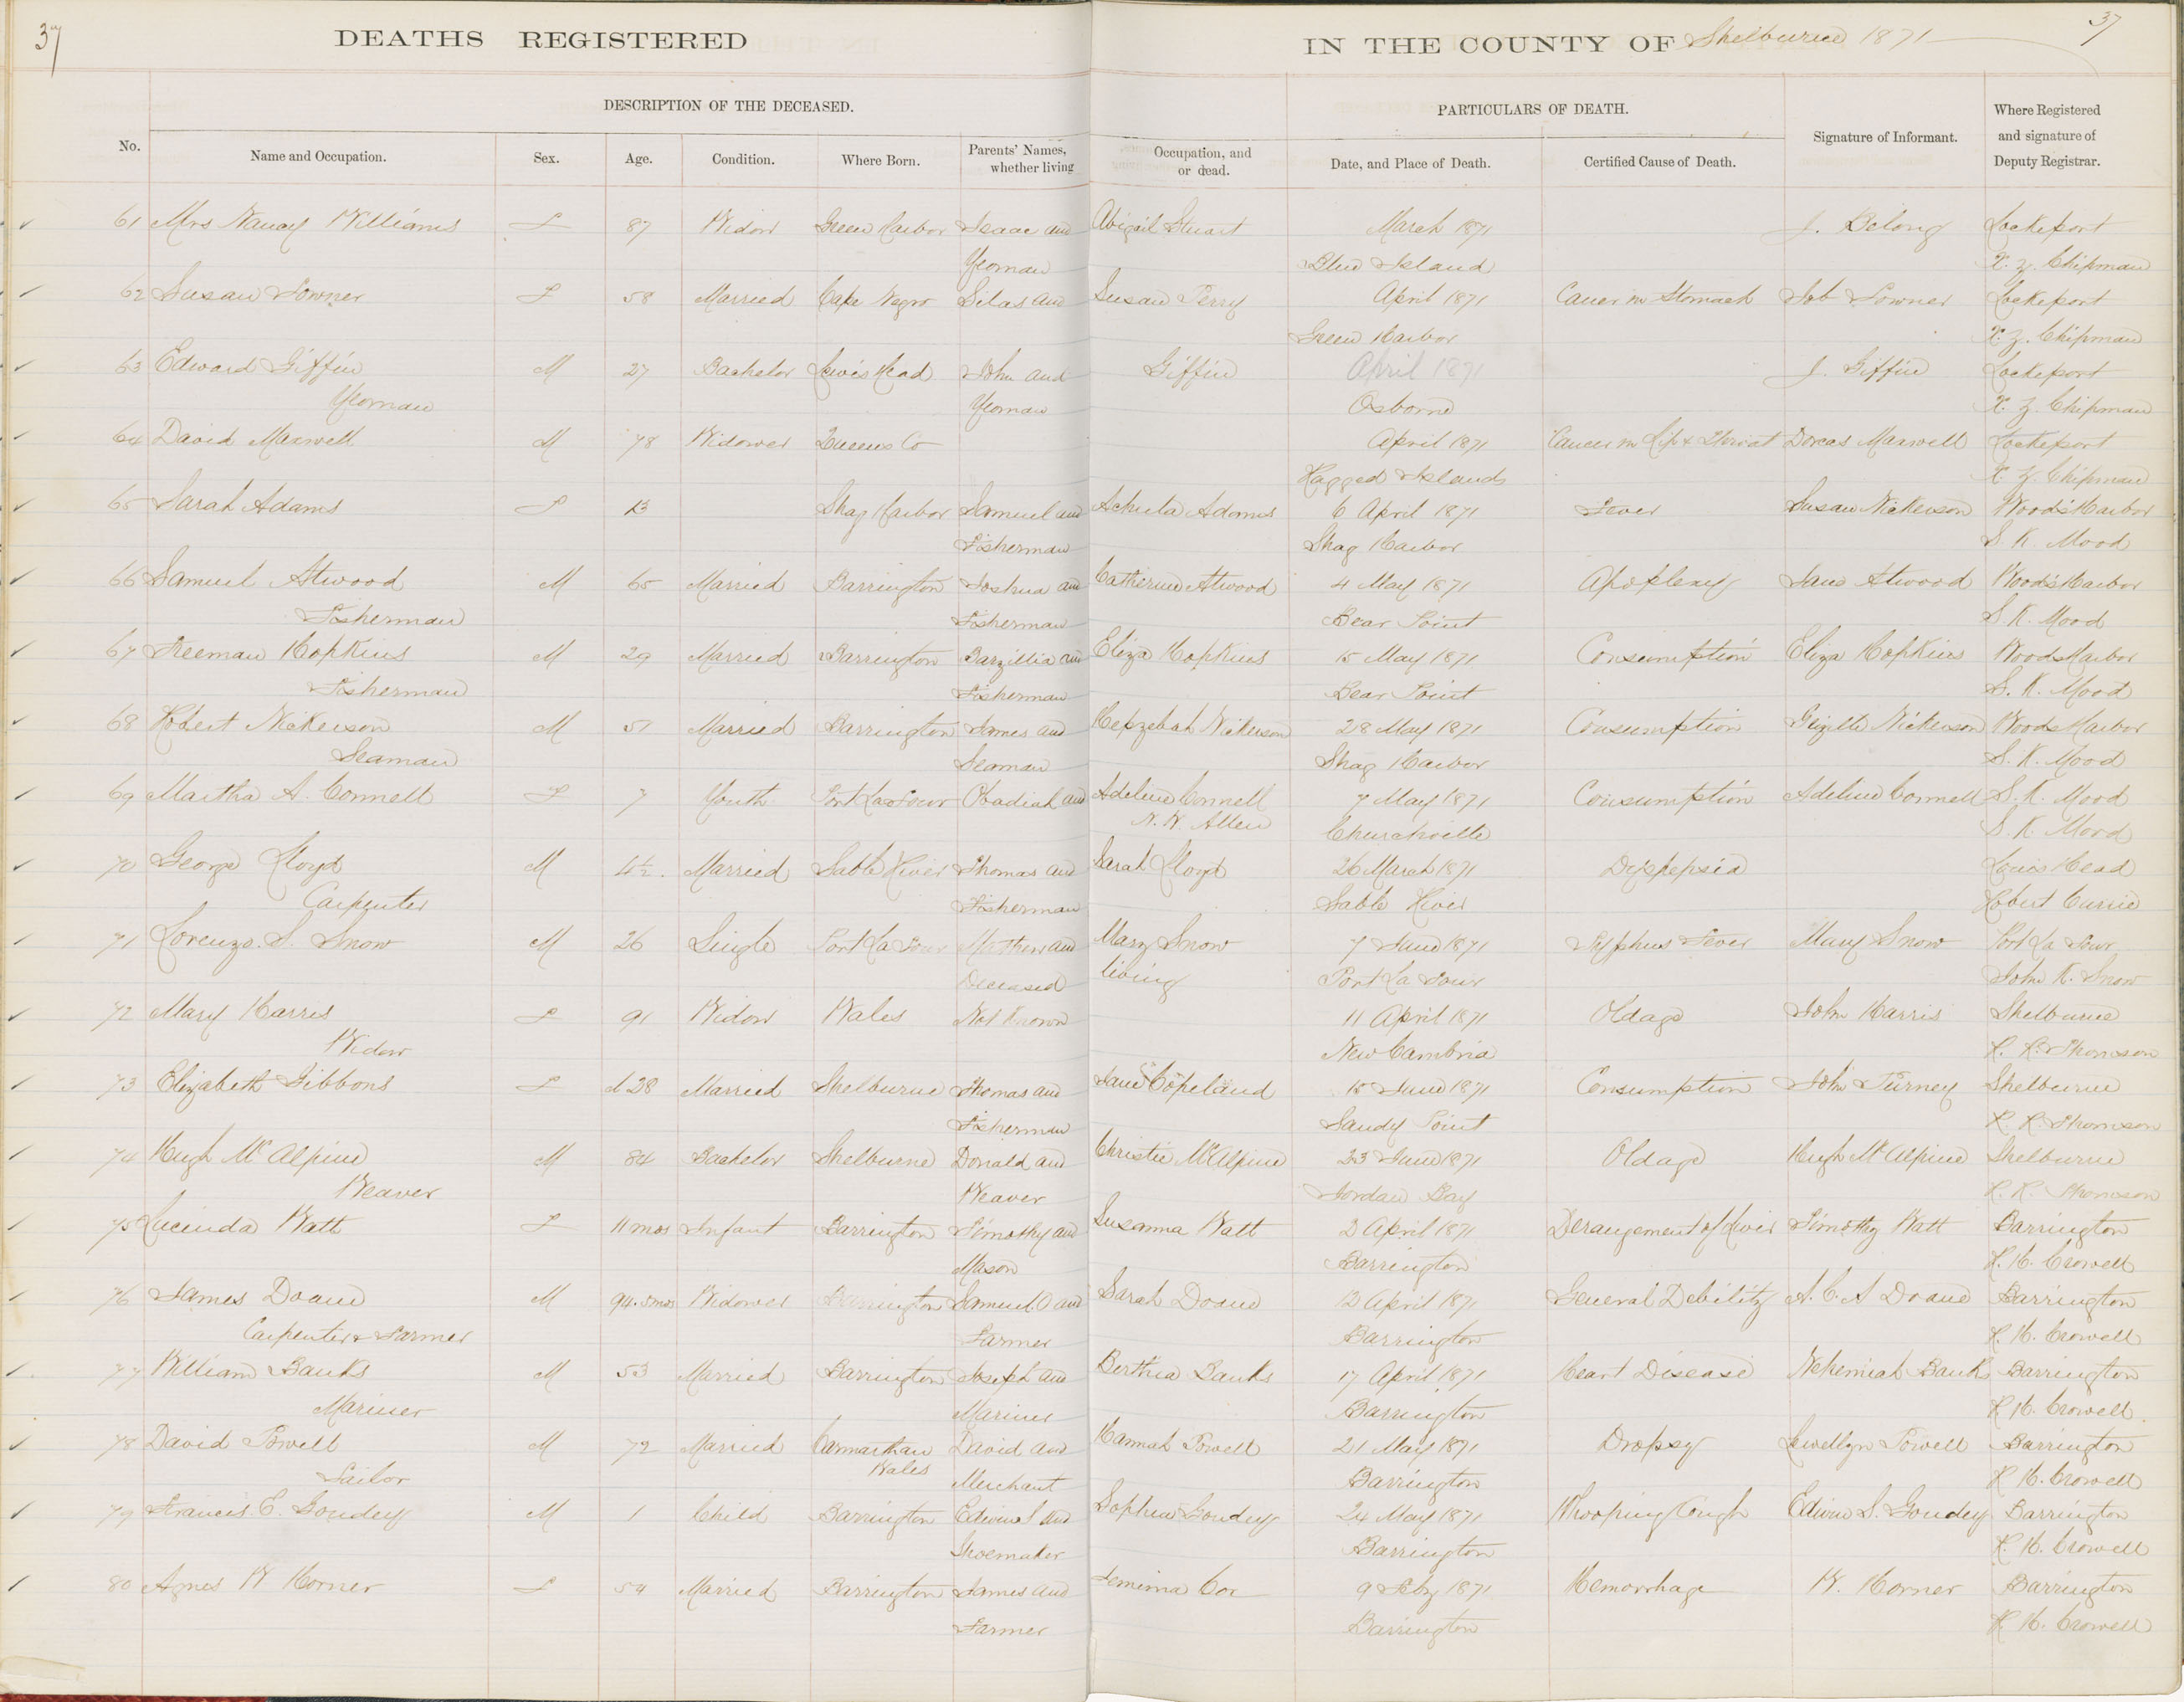 37
DEATHS REGISTERED
IN THE COUNTY OF Shelburne 1871
37
DESCRIPTION OF THE DECEASED.
PARTICULARS OF DEATH.
No.
Name and Occupation.
Sex.
Age.
Condition.
Where Born.
Parents' Names, whether living
Occupation, and or dead.
Date, and Place of Death.
Certified Cause of Death.
Signature of Informant.
Where Registered and signature of Deputy Registrar.
61 Mrs Nancy Williams F 87 Widow Green Harbor Isaac and Abigail Stuart March 1871 J. Belong Lockeport
Yeoman Blue Island Chipman
62 Susan Towner F 58 Married Cape Negro Silas and Susan Perry April 1871 Cancer in Stomach Job Towner Lockeport
Green Harbor Chipman
63 Edward Giffin M 27 Bachelor Lewis Head John and Giffin April 1871 J. Giffin Lockeport
Yeoman Yeoman Osborne Chipman
64 David Maxwell M 78 Widower Queens Co April 1871 Cancer in Lip & Throat Dorcas Maxwell Lockeport
Ragged Islands Chipman
65 Sarah Adams F 13 Shag Harbor Samuel and Adams 6 April 1871 Fever Susan Nickerson Woods Harbor
Fisherman Shag Harbor S. K. Mood
66 Samuel Atwood M 65 Married Barrington Joshua and Catherine Atwood 4 May 1871 Apoplexy Jane Atwood Woods Harbor
Fisherman Fisherman Bear Point S. K. Mood
67 Freeman Hopkins M 29 Married Barrington Barzillia and Eliza Hopkins 15 May 1871 Consumption Eliza Hopkins Woods Harbor
Fisherman Fisherman Bear Point S. K. Mood
68 Robert Nickerson M 51 Married Barrington James and Hepzebah Nickerson 28 May 1871 Consumption Nickerson Woods Harbor
Seaman Seaman Shag Harbor S. K. Mood
69 Martha A. Connell F 7 Youth Port La Tour Obadiah and Adeline Connell 7 May 1871 Consumption Adeline Connell S. K. Mood
N. W. Allen Churchville S. K. Mood
70 George Lloyd M 42. Married Sable River Thomas and Sarah Lloyd 26 March 1871 Dyspepsia Louis Head
Carpenter Fisherman Sable River Robert Currie
71 Lorenzo. S. Snow M 26 Single Port La Tour Mathew and Mary Snow 7 June 1871 Typhus Fever Mary Snow Port La Tour
Deceased living Port La Tour John K. Snow
72 Mary Harris F 91 Widow Wales Not Known 11 April 1871 Oldage John Harris Shelburne
Widow New Cambria R. R. Thomson
73 Elizabeth Gibbons F 28 Married Shelburne Thomas and Jane Copeland 15 June 1871 Consumption John Turney Shelburne
Fisherman Sandy Point R. R. Thomson
74 Hugh McAlpine M 84 Bachelor Shelburne Donald and Christie McAlpine 23 June 1871 Oldage Hugh McAlpine Shelburne
Weaver Weaver Jordan Bay R. R. Thomson
75 Lucinda Watt F 11 mos Infant Barrington Timothy and Susanna Watt 2 April 1871 Derangement of Liver Timothy Watt Barrington
Mason Barrington R. H. Crowell
76 James Doane M 94. 5 mos Widower Barrington Samuel O and Sarah Doane 12 April 1871 General Debility A. C. A Doane Barrington
Carpenter & Farmer Farmer Barrington R. H. Crowell
77 William Banks M 53 Married Barrington Joseph and Berthia Banks 17 April 1871 Heart Disease Nehemiah Banks Barrington
Mariner Mariner Barrington R. H. Crowell
78 David Powell M 72 Married Carmarthan Wales David and Hannah Powell 21 May 1871 Dropsy Lewellyn Powell Barrington
Sailor Merchant Barrington R. H. Crowell
79 Francis. E. Goudey M 1 Child Barrington Edwin S and Sophia Goudey 24 May 1871 Whooping Cough Edwin S. Goudey Barrington
Shoemaker Barrington R. H. Crowell
80 Agnes W Horner F 54 Married Barrington James and Jemima Cox 9 Feby 1871 Hemorrhage W. Horner Barrington
Farmer Barrington R. H. Crowell